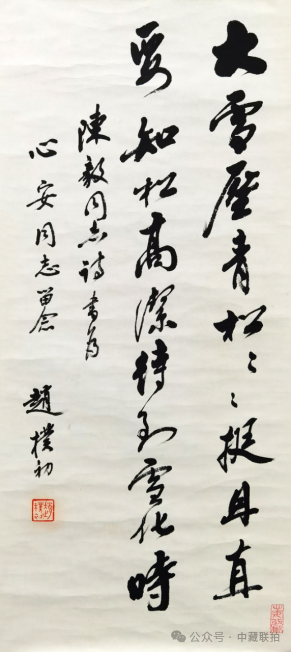 大雪壓青松〻〻挺且直
要知松高潔待到雪化時
陳毅同志詩書為
心安同志留念
趙樸初
公众号 · 中藏联拍